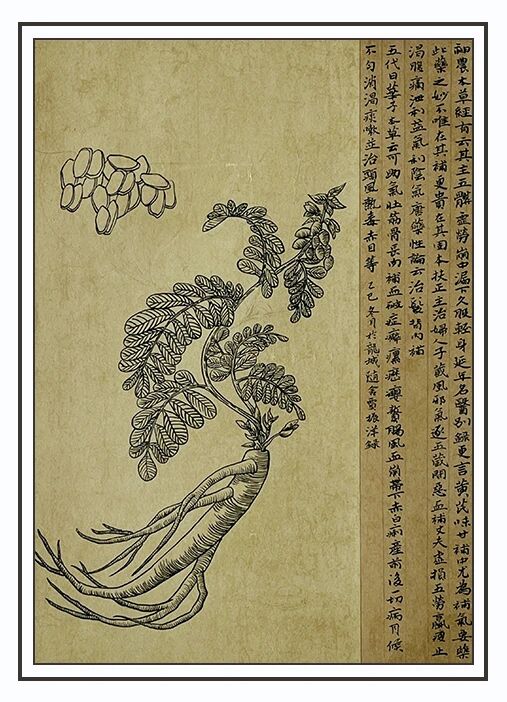 神農本草經有云其主五髒虛勞崩中漏下久服輕身延年名醫別錄更言黃芪味甘補中尤為補氣要藥
此藥之妙不唯在其補更貴在其固本扶正主治婦人子藏風邪氣逐五藏間惡血補丈夫虛損五勞羸瘦止
渴腹痛泄利益氣利陰氣唐藥性論云治發背內補
五代日華子本草云可助氣壯筋骨長肉補血破症癖瘰癧癭贅腸風血崩帶下赤白痢產前後一切病月候
不勻消渴痰嗽並治頭風熱毒赤目等 乙巳冬月於龍城賈振洋錄